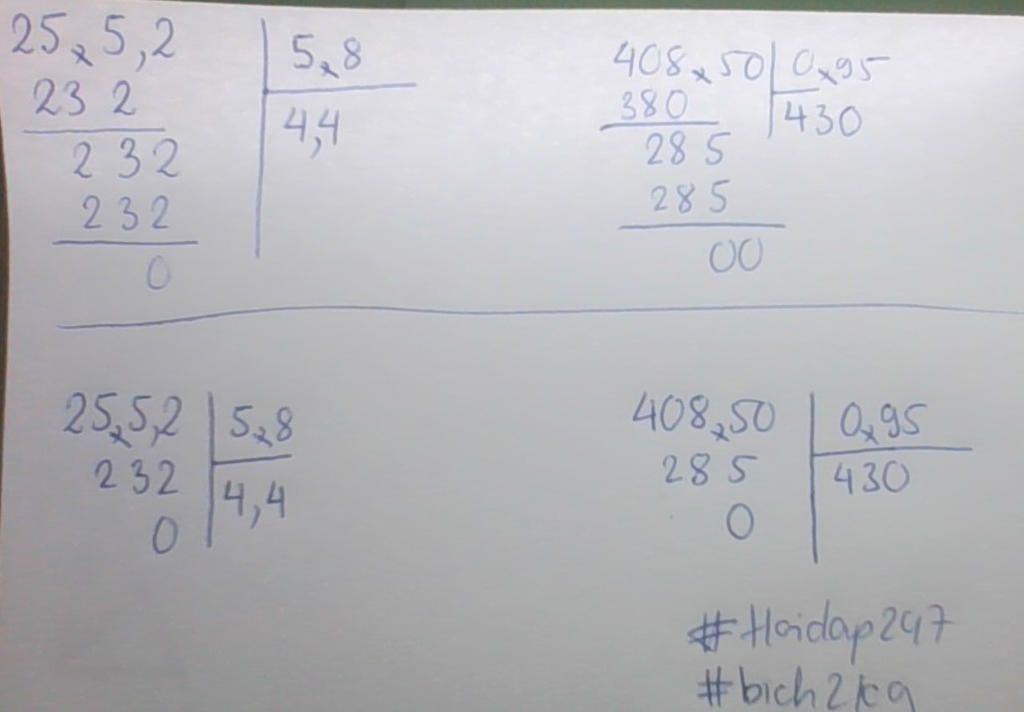 25,5,2 5,8
232 4,4
232
232
0
408,50 0,95
380 430
285
285
00
25,5,2 5,8
232 4,4
0
408,50 0,95
285 430
0
#Hoidap247
#bich2kg